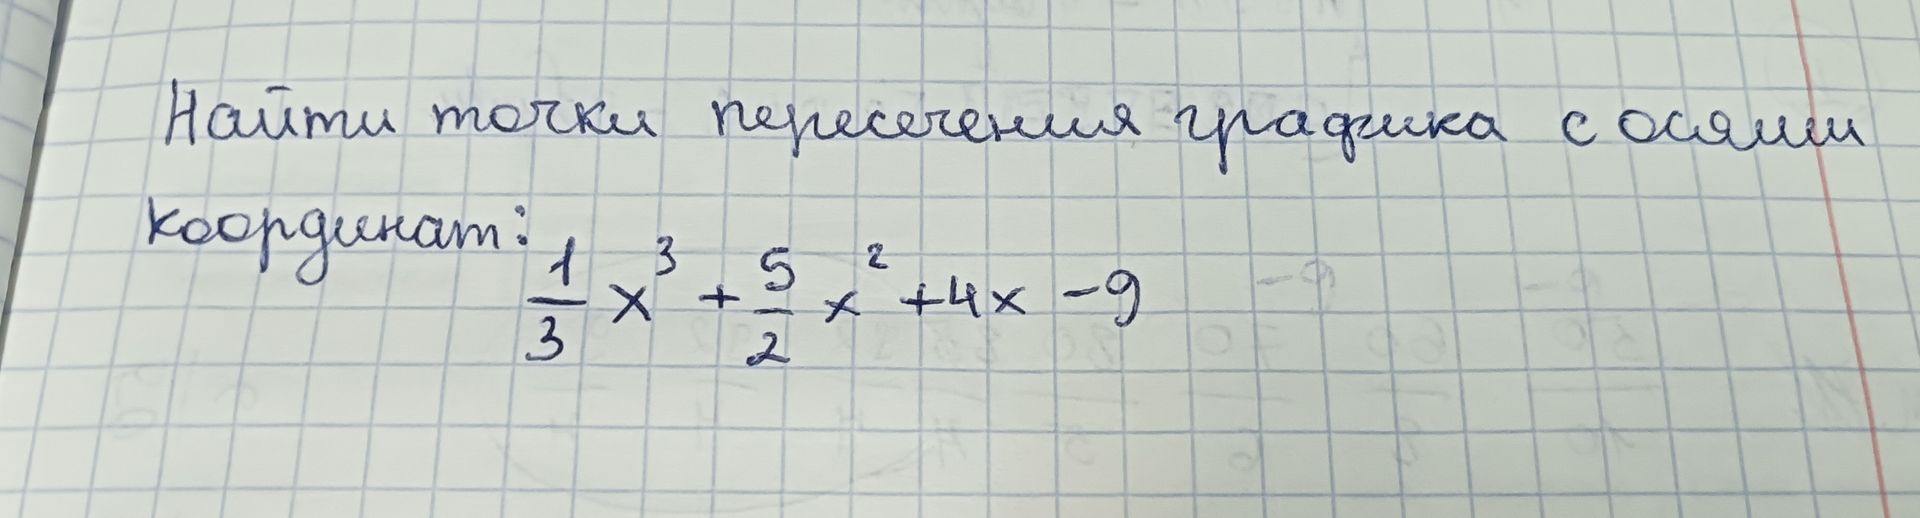 Найти точки пересечения графика с осями
координат:
1/3 x³ + 5/2 x² + 4x - 9